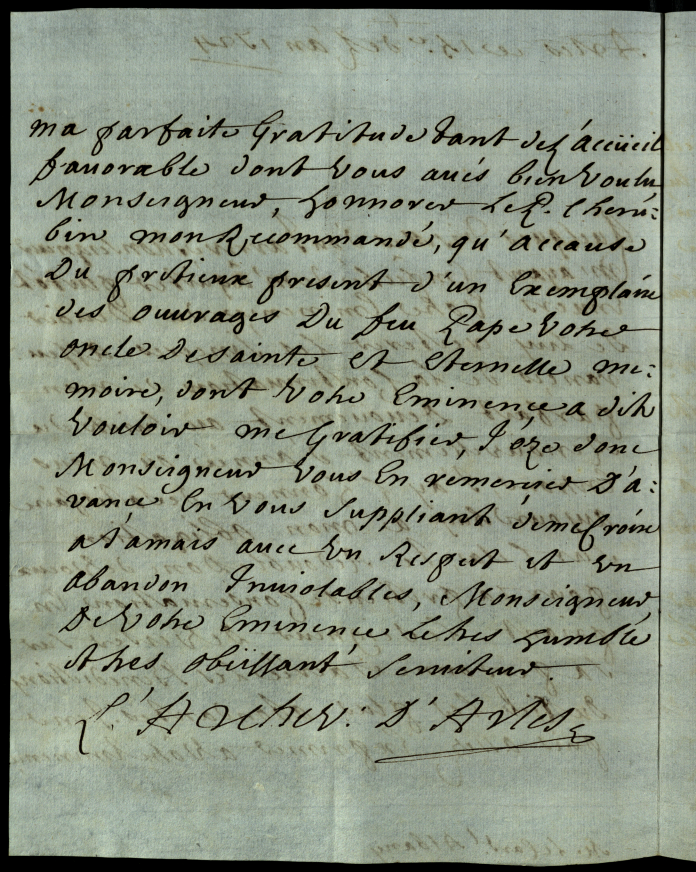 ma parfaite Gratitude tant del'accüeil
favorable dont vous avés bien voulu
Monseigneur, honnorer Le P. Cheru:
bin mon Recommandé, qu'accause
Du prétieux present d'un Exemplaire
des ouvrages Du feu Pape votre
oncle De sainte et eternelle me:
moire, dont votre Eminence a dit
vouloir me Gratifier, J'óze donc
Monseigneur vous En remercier D'a:
vance En vous suppliant demeCroire
aJamais avec un Respect et un
abandon Inviolables, Monseigneur
De votre Eminence Le tres humble
et tres obeïssant serviteur.
L'Archev: D'Arles